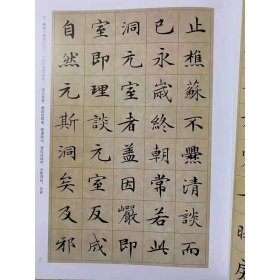 止樵蘇不爨清談而
已永歲終朝常若此
洞元室者盖因巖即
室即理談元室反成
自然元斯洞矣及邪